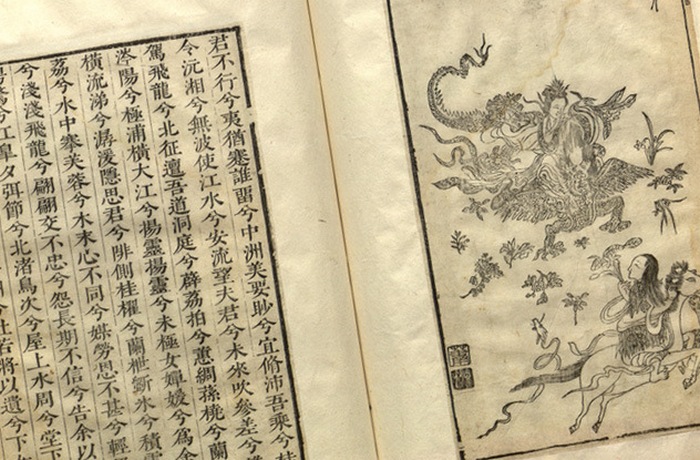 君不行兮夷猶蹇誰留兮中洲美要眇兮宜脩沛吾乘兮桂
令沅湘兮無波使江水兮安流望夫君兮未來吹參差兮
駕飛龍兮北征邅吾道洞庭兮薜荔拍兮蕙綢蓀橈兮蘭
涔陽兮極浦橫大江兮揚靈揚靈兮未極女嬋媛兮為余
橫流涕兮潺湲隱思君兮陫側桂櫂兮蘭枻斲冰兮積雪
荔兮水中搴芙蓉兮木末心不同兮媒勞恩不甚兮輕
兮淺淺飛龍兮翩翩交不忠兮怨長期不信兮告余以
騖兮江皋夕弭節兮北渚鳥次兮屋上水周兮堂下
杜若將以遺兮下